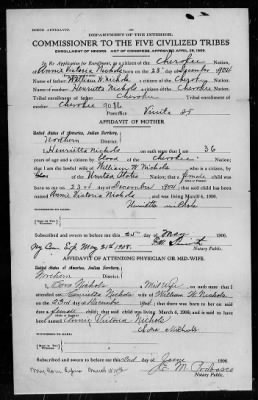 BIRTH AFFIDAVIT.
DEPARTMENT OF THE INTERIOR.
COMMISSIONER TO THE FIVE CIVILIZED TRIBES
ENROLLMENT OF MINORS. ACT OF CONGRESS, APPROVED APRIL 26, 1906.
In Re Application for Enrollment, as a citizen of the Cherokee Nation,
of Annie Victoria Nichols born on the 23rd day of December 1904
Name of Father: William W. Nichols a citizen of the Nation.
Name of Mother: Henrietta Nichols a citizen of the Cherokee Nation.
Tribal enrollment of father
Tribal enrollment of mother Cherokee
Postoffice Vinita I.T.
AFFIDAVIT OF MOTHER.
United States of America, Indian Territory,
Northern
District.
I, Henrietta Nichols on oath state that I am 36
years of age and a citizen by blood of the Cherokee Nation;
that I am the lawful wife of William W. Nichols who is a citizen, by
of the United States that a female child was
born to me on 23rd day of December 1904 that said child has been
named Annie Victoria Nichols and was living March 4, 1906.
Henrietta Nichols
WITNESSES TO MARK:
Subscribed and sworn to before me this 25 day of May 1906.
My Com. Exp May 31st 1908.
Notary Public.
AFFIDAVIT OF ATTENDING PHYSICIAN OR MID-WIFE.
United States of America, Indian Territory,
Northern
District.
I, Nichols a Mid Wife on oath state that I
attended on Henrietta Nichols wife of William W. Nichols
on the 23rd day of December 1904 that there was born to her on said
date a female child; that said child was living March 4, 1906, and is said to
have been named Annie Victoria Nichols
Nichols
WITNESSES TO MARK:
Subscribed and sworn to before me this 2nd day of June 1906.
Notary Public.